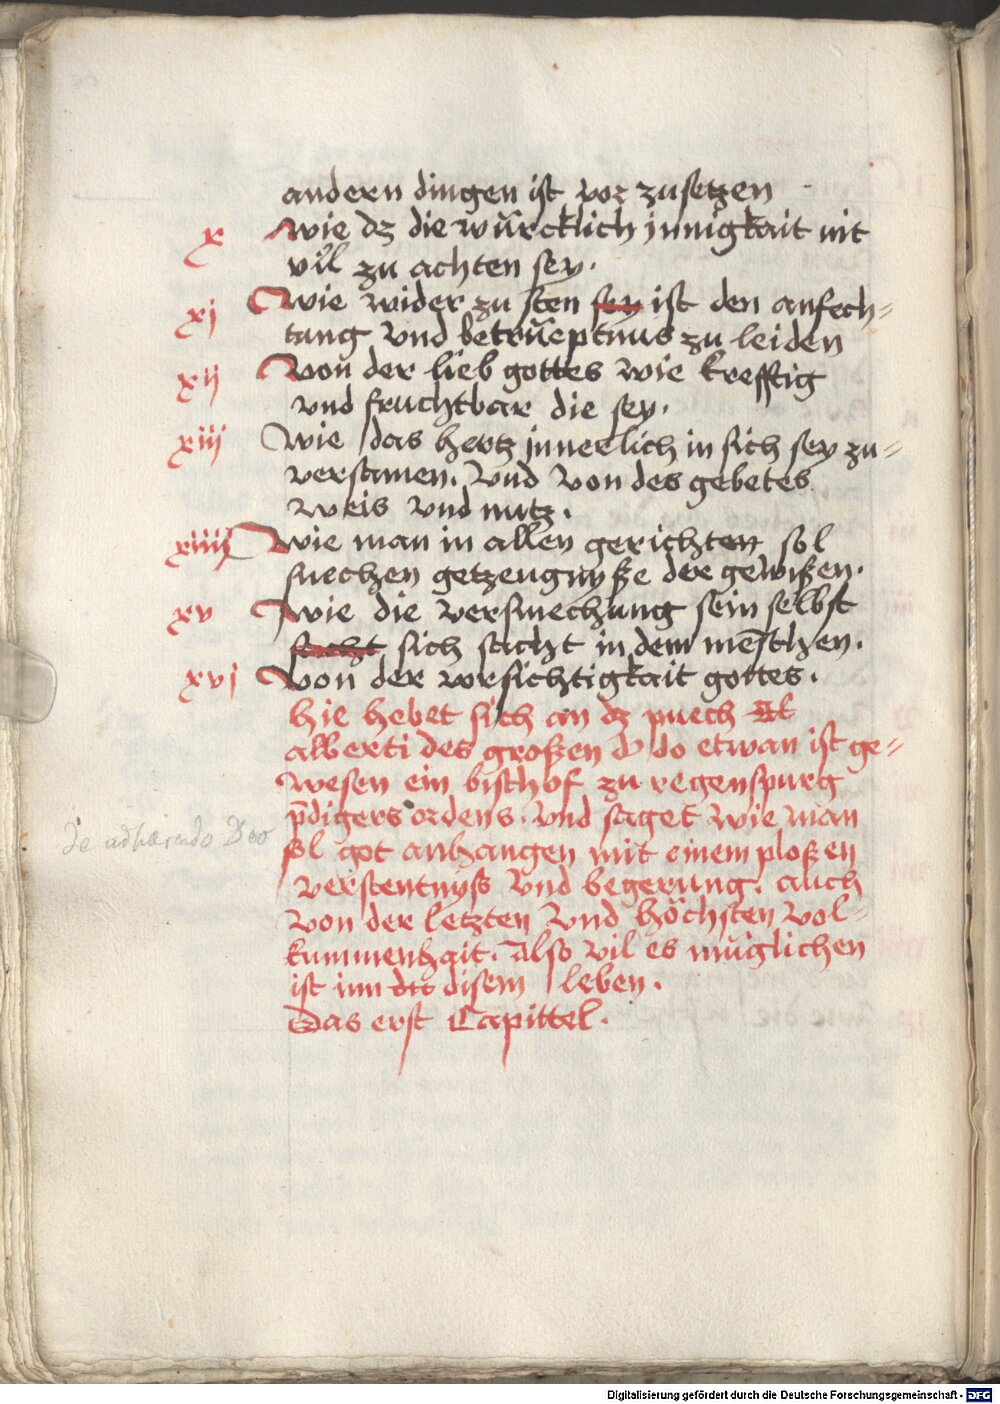 andern dingen ist vor zusetzen
x wie dz die würcklich jnnigkait nit
vil zu achten sey.
xj wie wider zu sten sey ist den anfech-
tung vnd betrüeptnus zu leiden
xij von der lieb gottes wie krefftig
vnd fruchtbar die sey.
xiij wie das hertz jnnerlich in sich sey zu-
versamen. vnd von des gebetes
weis vnd nutz.
xiiij wie man in allen gerichten sol
suechen getzeugnyße der gewißen.
xv wie die versmechung sein selbst
sich sacht in dem mēschen.
xvj von der vorsichtigkait gottes.
hie hebet sich an dz puech
alberti des großen do etwan ist ge-
wesen ein bischof zu regenspurg
p̄digers ordens. vnd saget wie man
sol got anhangen mit einem ploßen
de adhaerendo Deo
verstentnyss vnd begerung. auch
von der letzten vnd höchsten vol-
kummenhait. also vil es müglichen
ist inn disem leben.
Das erst Capittel.
Digitalisierung gefördert durch die Deutsche Forschungsgemeinschaft - DFG